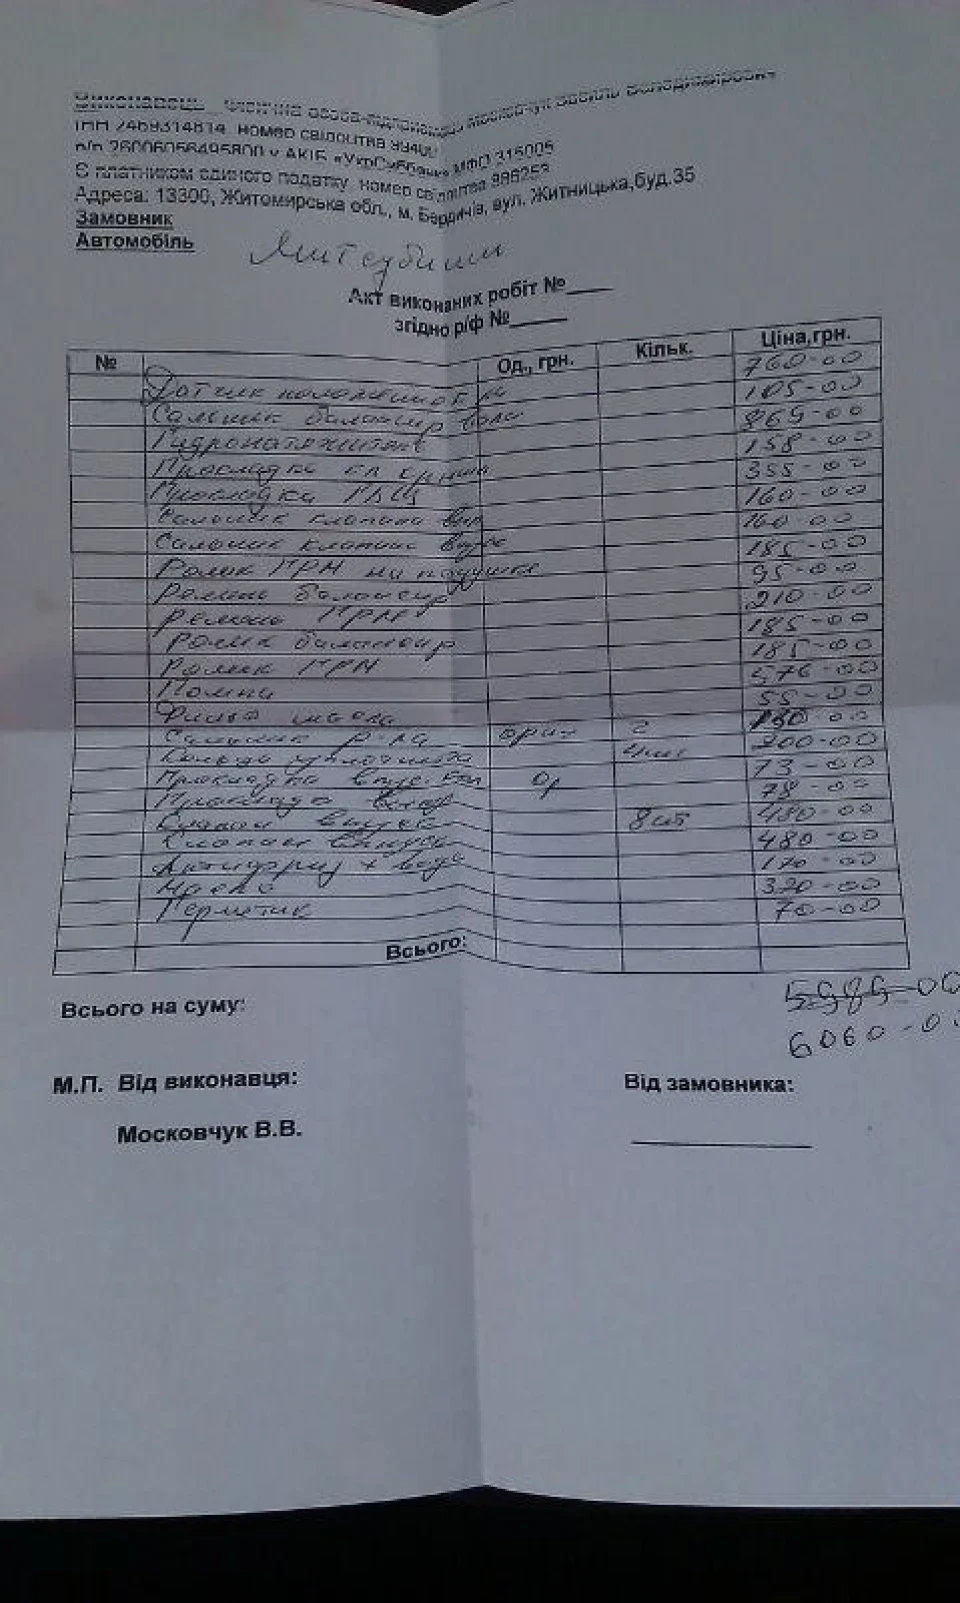 Виконавець Фізична особа-підприємець Московчук Василь Володимирович
ІНН 2469314814 номер свідоцтва 99400
р/р 26006056495800 у АКІБ «УкрСиббанк» МФО 315005
Є платником єдиного податку, номер свідоцтва 996253
Адреса: 13300, Житомирська обл., м. Бердичів, вул. Житницька,буд.35
Замовник
Автомобіль Митсубиши
Акт виконаних робіт №____
згідно р/ф №_____
№ Од., грн. Кільк. Ціна,грн.
Датчик положения 760-00
Сальник балансир вала 105-00
Гидронатяжитель 869-00
Прокладка кл крышки 158-00
Прокладка ГБЦ 355-00
Сальник клапана вып 160-00
Сальник клапана впуск 160-00
Ролик ГРМ на подушке 185-00
Ремень балансир 95-00
Ремень ГРМ 210-00
Ролик балансир 185-00
Ролик ГРМ 185-00
Помпа 576-00
Фильтр масла 55-00
Сальник р-ла ориг 2 130-00
Кольца 4шт 200-00
Прокладка впус. кол ор 73-00
Прокладка 78-00
Клапан впуск 8шт 480-00
Клапан 480-00
Антифриз + вода 170-00
Масло 320-00
Герметик 70-00
Всього:
Всього на суму: 5989-00
6060-0
М.П. Від виконавця: Від замовника:
Московчук В.В.